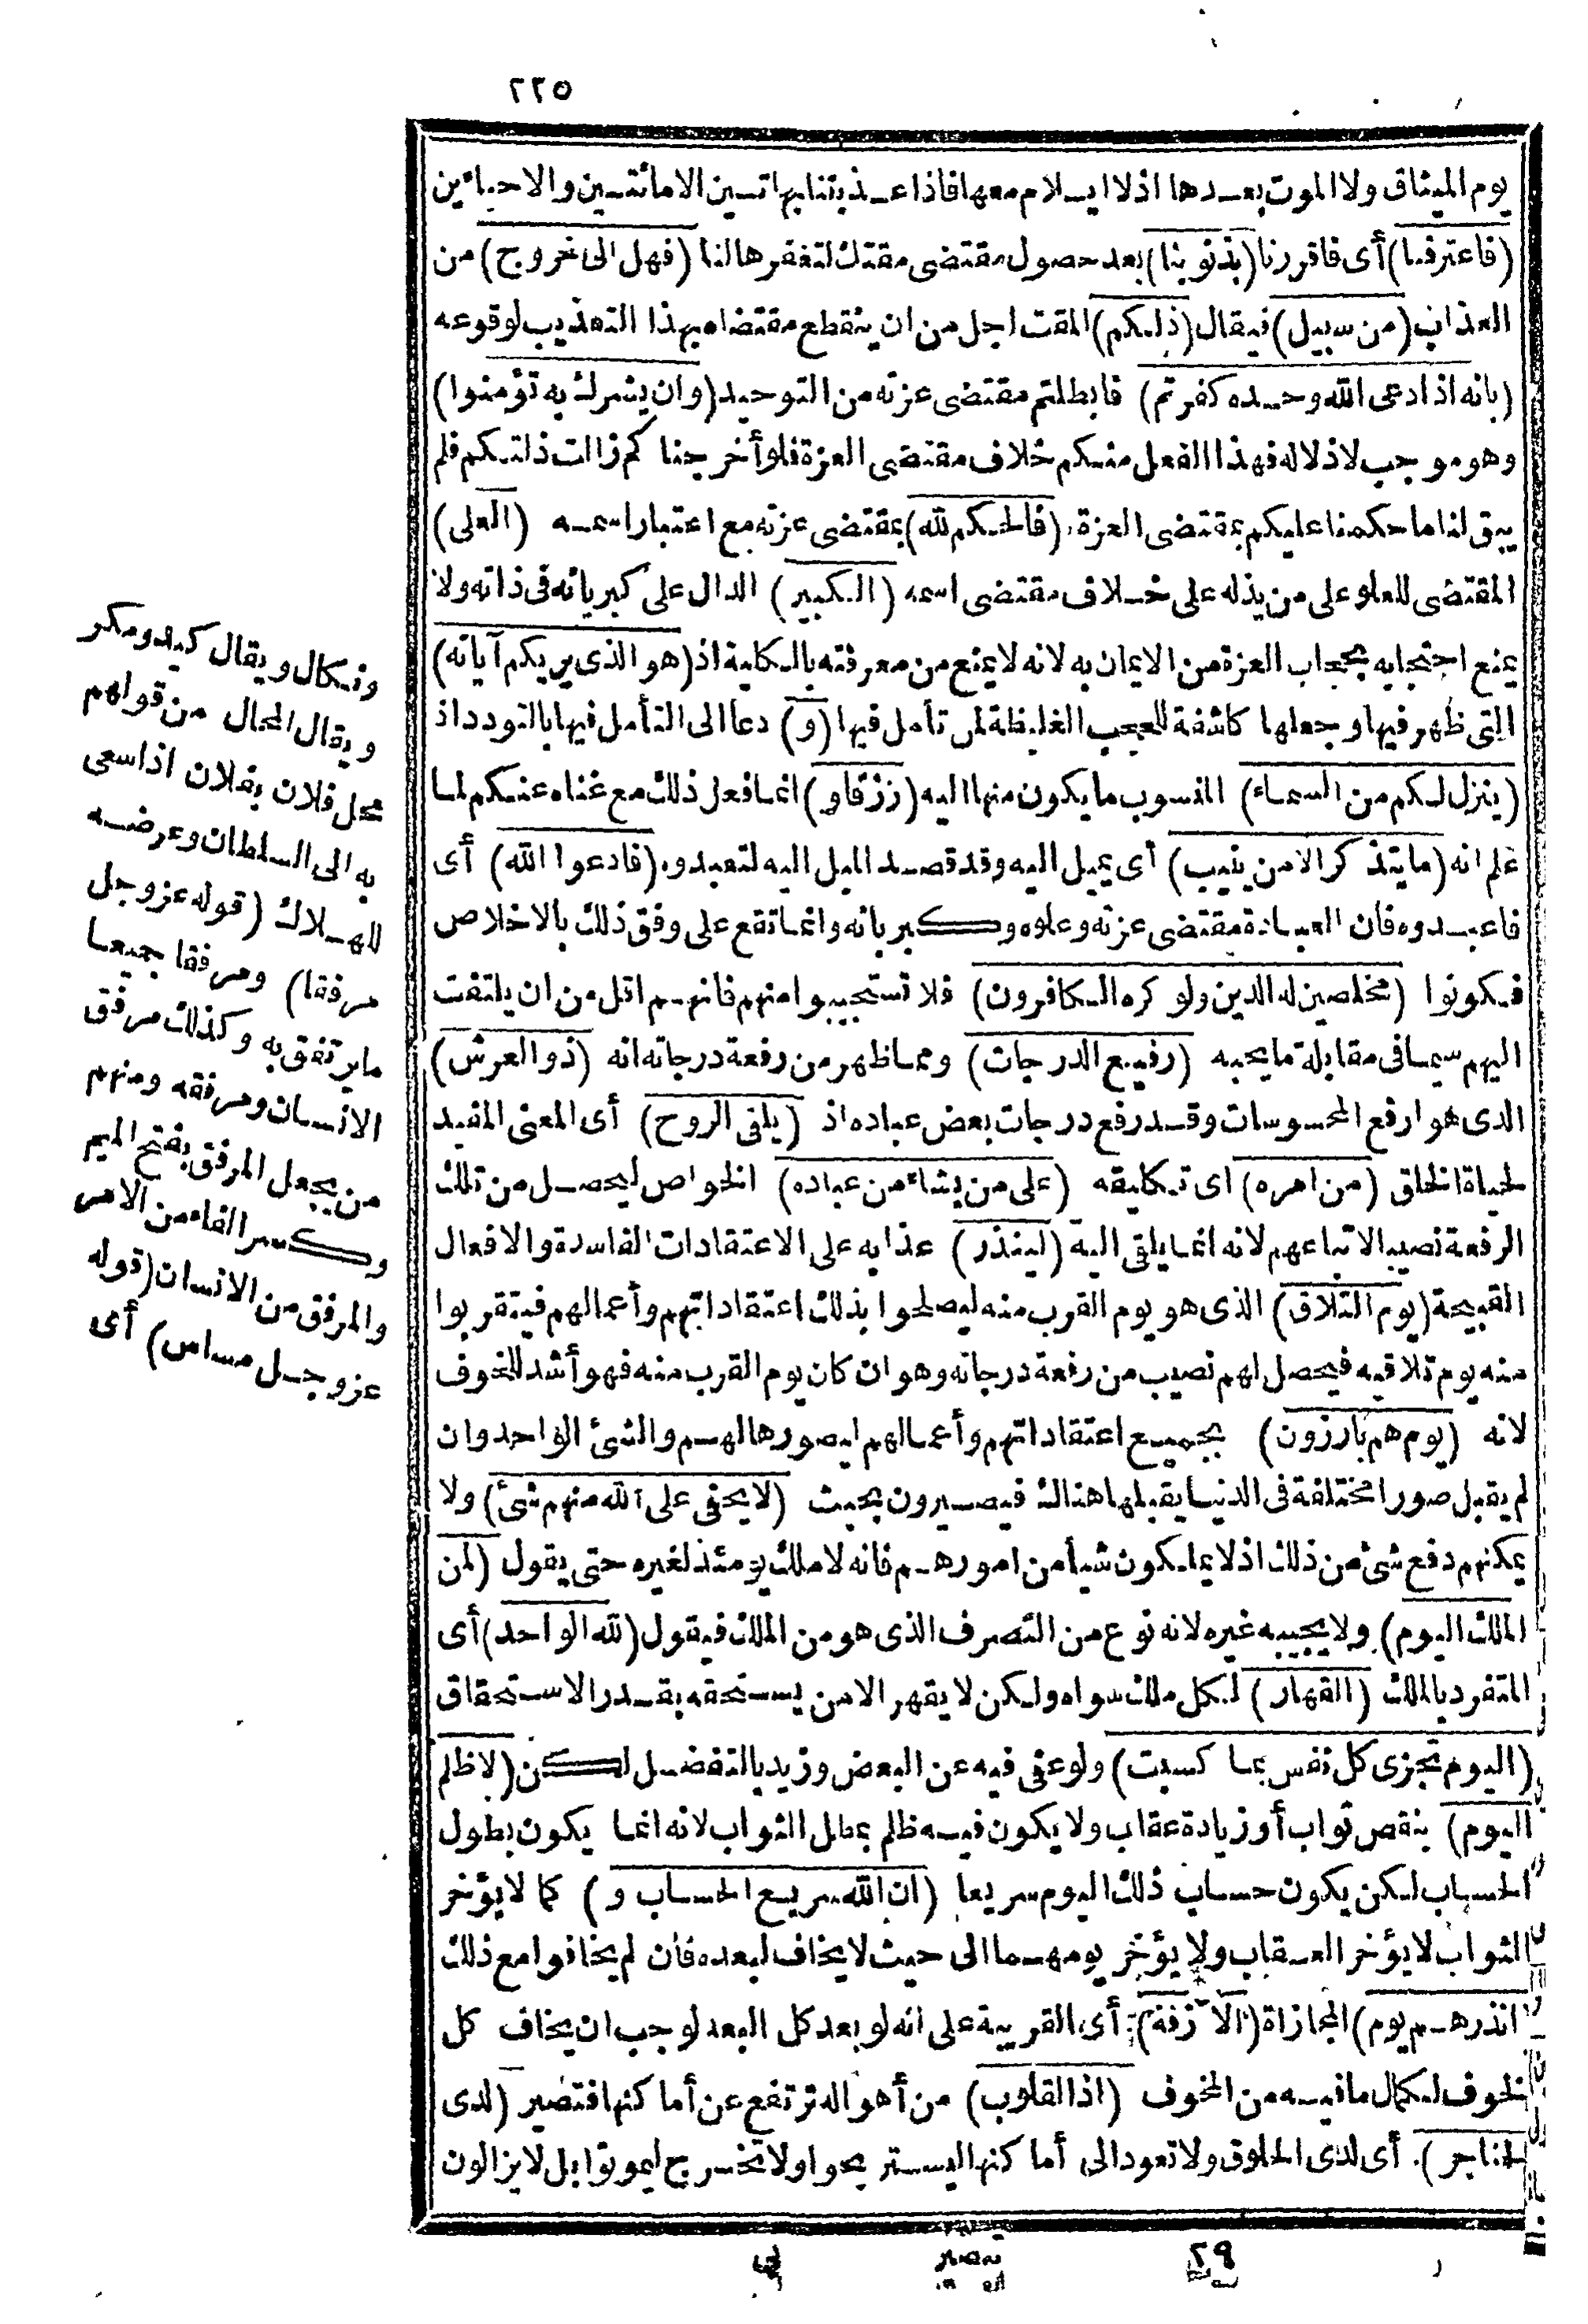 ٢٢٥
يوم الميثاق ولا الموت بعدها اذ لا ايلام معها فاذا عذبتنا بها تين الاماتتين والاحياءين
(فاعترفنا) أى فاقررنا (بذنوبنا) بعد حصول مقتضى مقتك لتغفرها لنا (فهل الى خروج) من
العذاب (من سبيل) فيقال (ذلكم) المقت اجل من ان ينقطع مقتضاه بهذا التعذيب لوقوعه
(بانه اذا دعى الله وحده كفرتم) فابطلتم مقتضى عزته من التوحيد (وان يشرك به تؤمنوا)
وهو موجب لاذلاله فهذا الفعل منكم خلاف مقتضى العزة فلو أخرجنا كم زالت ذلتكم فلم
يبق لنا ما حكمنا عليكم بمقتضى العزة (فالحكم لله) بمقتضى عزته مع اعتبار اسمه (العلى)
المقتضى للعلو على من يذله على خلاف مقتضى اسمه (الكبير) الدال على كبريائه فى ذاته ولا
يمنع احتجابه بحجاب العزة من الايمان به لانه لا يمنع من معرفته بالكلية اذ (هو الذى يريكم آياته)
التى ظهر فيها وجعلها كاشفة للعجب الغليظة لمن تأمل فيها (و) دعا الى التأمل فيها بالتودد اذ
(ينزل لكم من السماء) المنسوب ما يكون منها اليه (رزقا و) انما فعل ذلك مع غناه عنكم لما
علم انه (ما يتذكر الا من ينيب) أى يميل اليه وقد قصد الميل اليه لتعبدوه (فادعوا الله) أى
فاعبدوه فان العبادة مقتضى عزته وعلوه وكبريائه وانما تقع على وفق ذلك بالاخلاص
فكونوا (مخلصين له الدين ولو كره الكافرون) فلا تستحيبوا منهم فانهم اقل من ان يلتفت
اليهم سيما فى مقابلة ما يحبه (رفيع الدرجات) ومما ظهر من رفعة درجاته انه (ذو العرش)
الذى هو ارفع المحسوسات وقد رفع درجات بعض عباده اذ (يلقى الروح) أى المعنى المفيد
لحياة الخلق (من امره) اى تكليفه (على من يشاء من عباده) الخواص ليحصل من تلك
الرفعة نصيب الاتباعهم لانه انما يلقى اليه (لينذر) عذابه على الاعتقادات الفاسدة والافعال
القبيحة (يوم التلاق) الذى هو يوم القرب منه ليصلحوا بذلك اعتقاداتهم وأعمالهم فيتقربوا
منه يوم تلاقيه فيحصل لهم نصيب من رفعة درجاته وهو ان كان يوم القرب منه فهو أشد للخوف
لانه (يوم هم بارزون) بجميع اعتقاداتهم وأعمالهم ليصورها لهم والشئ الواحد وان
لم يقبل صورا مختلفة فى الدنيا يقبلها هنالك فيصيرون بحيث (لا يخفى على الله منهم شئ) ولا
يمكنهم دفع شئ من ذلك اذ لا يملكون شيأ من امورهم فانه لا ملك يومئذ لغيره حتى يقول (لمن
الملك اليوم) ولا يجيبه غيره لانه نوع من التصرف الذى هو من الملك فيقول (لله الواحد) أى
المتفرد بالملك (القهار) لكل ملك سواه ولكن لا يقهر الا من يستحقه بقدر الاستحقاق
(اليوم تجزى كل نفس بما كسبت) ولو عفى فيه عن البعض وزيد بالتفضل لكن (لا ظلم
اليوم) بنقص ثواب أو زيادة عقاب ولا يكون فيه ظلم بمطل الثواب لانه انما يكون بطول
الحساب لكن يكون حساب ذلك اليوم سريعا (ان الله سريع الحساب و) كما لا يؤخر
الثواب لا يؤخر العقاب ولا يؤخر يومهما الى حيث لا يخاف لبعده فان لم يخافوا مع ذلك
(انذرهم يوم) المجازاة (الآزفة) أى القريبة على انه لو بعد كل البعد لوجب ان يخاف كل
الخوف لكمال ما فيه من المخوف (اذ القلوب) من أهواله ترتفع عن أما كنها فتصير (لدى
الحناجر) أى لدى الحلوق ولا تعود الى أما كنها ليستريحوا ولا تخرج ليموتوا بل لا يزالون
ونكال ويقال كيد ومكر
ويقال المحال من قولهم
محل فلان بفلان اذا سعى
به الى السلطان وعرضه
للهلاك (قوله عز وجل
مرفقا) ومرفقا جميعا
ما يرتفق به وكذلك مرفق
الانسان ومرفقه ومنهم
من يجعل المرفق بفتح الميم
وكسر الفاء من الامر
والمرفق من الانسان (قوله
عز وجل مساس) أى
٢٩